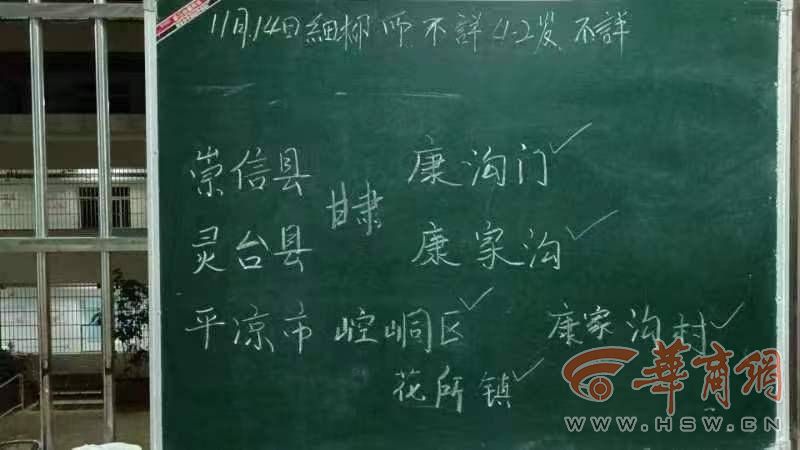 11月14日細柳师不詳4.2发不詳
崇信县 康沟门
甘肃
灵台县 康家沟
平凉市 崆峒区 康家沟村
花所镇
華商網
WWW.HSW.CN